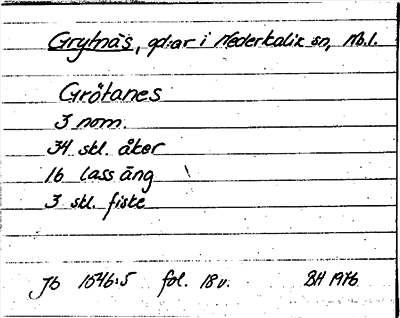 Grytnäs, gd:ar i Nederkalix sn, Nb.l.
Grötanes
3 nom.
34 skl. åker
16 lass äng
3 skl. fiske
Jb 1646:5 fol. 18 v. BH 1976